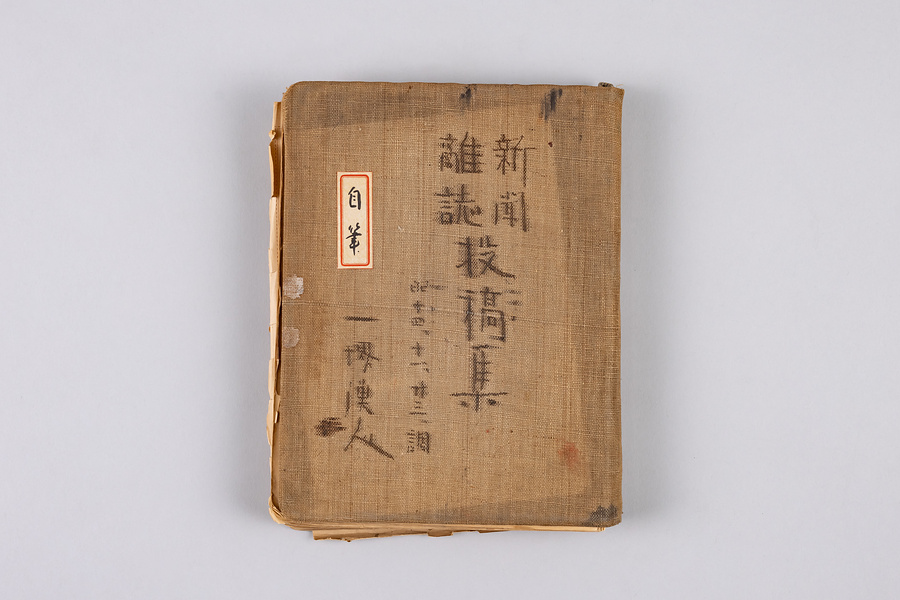 新聞
雜誌
投稿集
昭十四、十一、廿三、調
自筆
一漢人